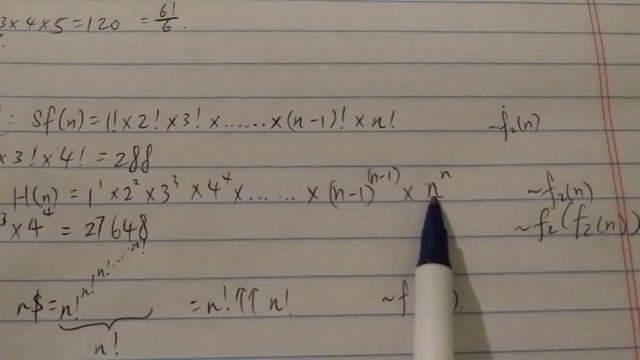 3×4×5=120 = 6!/6.
: Sf(n)=1!×2!×3!×.......×(n-1)!×n! ~f₂(n)
×3!×4!=288
H(n)=1¹×2²×3³×4⁴×.......×(n-1)⁽ⁿ⁻¹⁾×nⁿ ~f₂(n)
³×4⁴=27648 ~f₂(f₂(n))
n$=n!^n!^n!^...^n! =n!↑↑n! ~f ).
n!